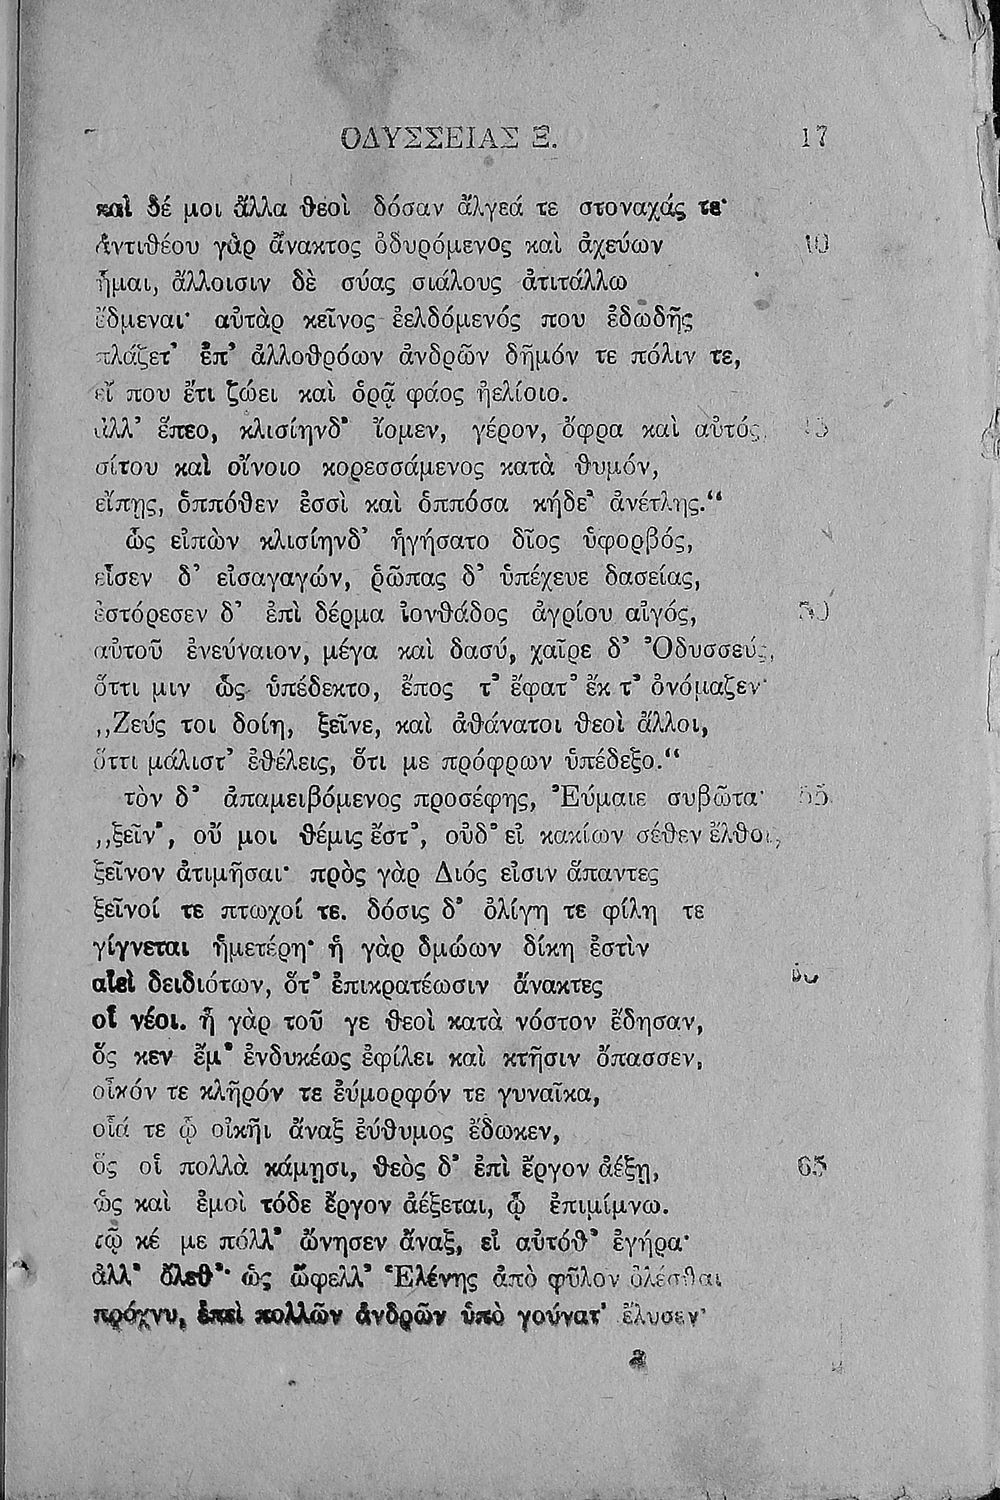 ΟΔΥΣΣΕΙΑΣ Ξ. 17
καὶ δέ μοι ἄλλα θεοὶ δόσαν ἄλγεά τε στοναχάς τε·
ἀντιθέου γὰρ ἄνακτος ὀδυρόμενος καὶ ἀχεύων
ἧμαι, ἄλλοισιν δὲ σύας σιάλους ἀτιτάλλω
ἔδμεναι· αὐτὰρ κεῖνος ἐελδόμενός που ἐδωδῆς
πλάζετ’ ἐπ’ ἀλλοθρόων ἀνδρῶν δῆμόν τε πόλιν τε,
εἴ που ἔτι ζώει καὶ ὁρᾷ φάος ἠελίοιο.
ἀλλ’ ἕπεο, κλισίηνδ’ ἴομεν, γέρον, ὄφρα καὶ αὐτός,
σίτου καὶ οἴνοιο κορεσσάμενος κατὰ θυμόν,
εἴπῃς, ὁππόθεν ἐσσὶ καὶ ὁππόσα κήδε’ ἀνέτλης.“
ὣς εἰπὼν κλισίηνδ’ ἡγήσατο δῖος ὑφορβός,
εἷσεν δ’ εἰσαγαγών, ῥῶπας δ’ ὑπέχευε δασείας,
ἐστόρεσεν δ’ ἐπὶ δέρμα ἰονθάδος ἀγρίου αἰγός, 50
αὐτοῦ ἐνεύναιον, μέγα καὶ δασύ, χαῖρε δ’ Ὀδυσσεύς,
ὅττι μιν ὣς ὑπέδεκτο, ἔπος τ’ ἔφατ’ ἔκ τ’ ὀνόμαζεν·
„Ζεύς τοι δοίη, ξεῖνε, καὶ ἀθάνατοι θεοὶ ἄλλοι,
ὅττι μάλιστ’ ἐθέλεις, ὅτι με πρόφρων ὑπέδεξο.“
τὸν δ’ ἀπαμειβόμενος προσέφης, Ἐύμαιε συβῶτα· 55
„ξεῖν’, οὔ μοι θέμις ἔστ’, οὐδ’ εἰ κακίων σέθεν ἔλθοι,
ξεῖνον ἀτιμῆσαι· πρὸς γὰρ Διός εἰσιν ἅπαντες
ξεῖνοί τε πτωχοί τε. δόσις δ’ ὀλίγη τε φίλη τε
γίγνεται ἡμετέρη· ἡ γὰρ δμώων δίκη ἐστὶν
αἰεὶ δειδιότων, ὅτ’ ἐπικρατέωσιν ἄνακτες
οἳ νέοι. ἦ γὰρ τοῦ γε θεοὶ κατὰ νόστον ἔδησαν,
ὅς κεν ἔμ’ ἐνδυκέως ἐφίλει καὶ κτῆσιν ὄπασσεν,
οἶκόν τε κλῆρόν τε ἐύμορφόν τε γυναῖκα,
οἷά τε ᾧ οἰκῆι ἄναξ ἐύθυμος ἔδωκεν,
ὅς οἱ πολλὰ κάμῃσι, θεὸς δ’ ἐπὶ ἔργον ἀέξῃ, 65
ὡς καὶ ἐμοὶ τόδε ἔργον ἀέξεται, ᾧ ἐπιμίμνω.
τῷ κέ με πόλλ’ ὤνησεν ἄναξ, εἰ αὐτόθ’ ἐγήρα·
ἀλλ’ ὄλεθ’· ὡς ὤφελλ’ Ἑλένης ἀπὸ φῦλον ὀλέσθαι
πρόχνυ, ἐπεὶ πολλῶν ἀνδρῶν ὑπὸ γούνατ’ ἔλυσεν·